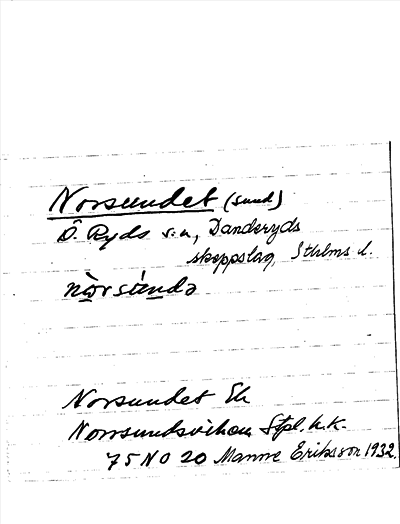 Norsundet (sund)
Ö. Ryds s:n, Danderyds
skeppslag, Sthlms l.
nòrsúndə
Norsundet Ek
Norrsundsviken Stpl. h.k.
75 NO 20 Manne Eriksson 1932.